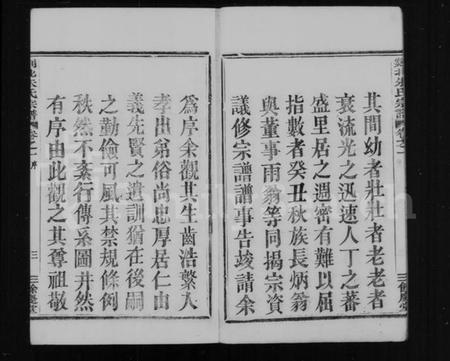 其間幼者壯壯者老老者
衰流光之迅速人丁之蕃
盛里居之週密有難以屈
指數者癸丑秋族長炳翁
與董事雨翁等同揭宗資
議修宗譜譜事告竣請余
為序余觀其生齒浩繁人
孝出弟俗尚忠厚居仁由
義先賢之遺訓猶在後嗣
之勤儉可風其禁規條例
秩然不紊行傳系圖井然
有序由此觀之其尊祖敬
卷之一 序
三
三餘慶堂